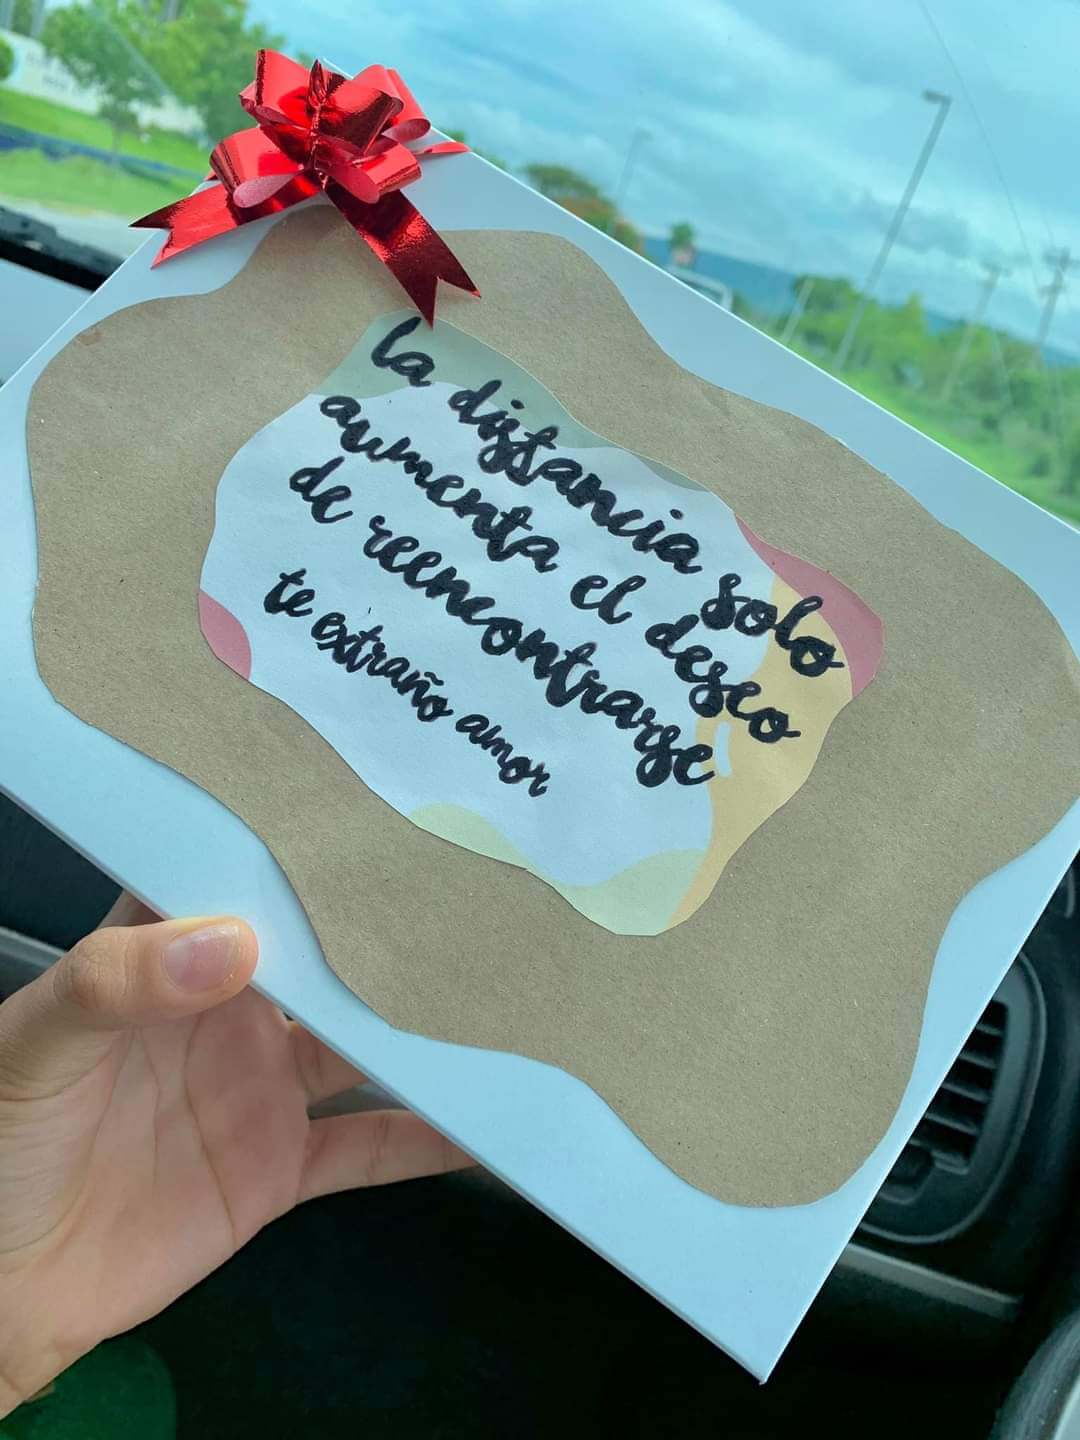 la distancia solo
aumenta el deseo
de reencontrarse
te extraño amor